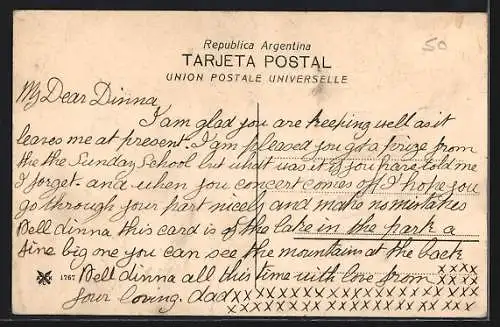 Republica Argentina
TARJETA POSTAL
UNION POSTALE UNIVERSELLE
50
My Dear Dinna
I am glad you are keeping well as it
leaves me at present. I am pleased you got a prize from
the the Sunday School but what was it if you have told me
I forget. and when you concert comes off I hope you
go through your part nicely and make no mistakes
Dell dinna this card is of the lake in the park a
fine big one you can see the mountains at the back
1767 Dell dinna all this time with love from xxxx
your loving. dad xxxxxxxxxxxxxxxxx
xxxxxxxxxxxxxxxxx